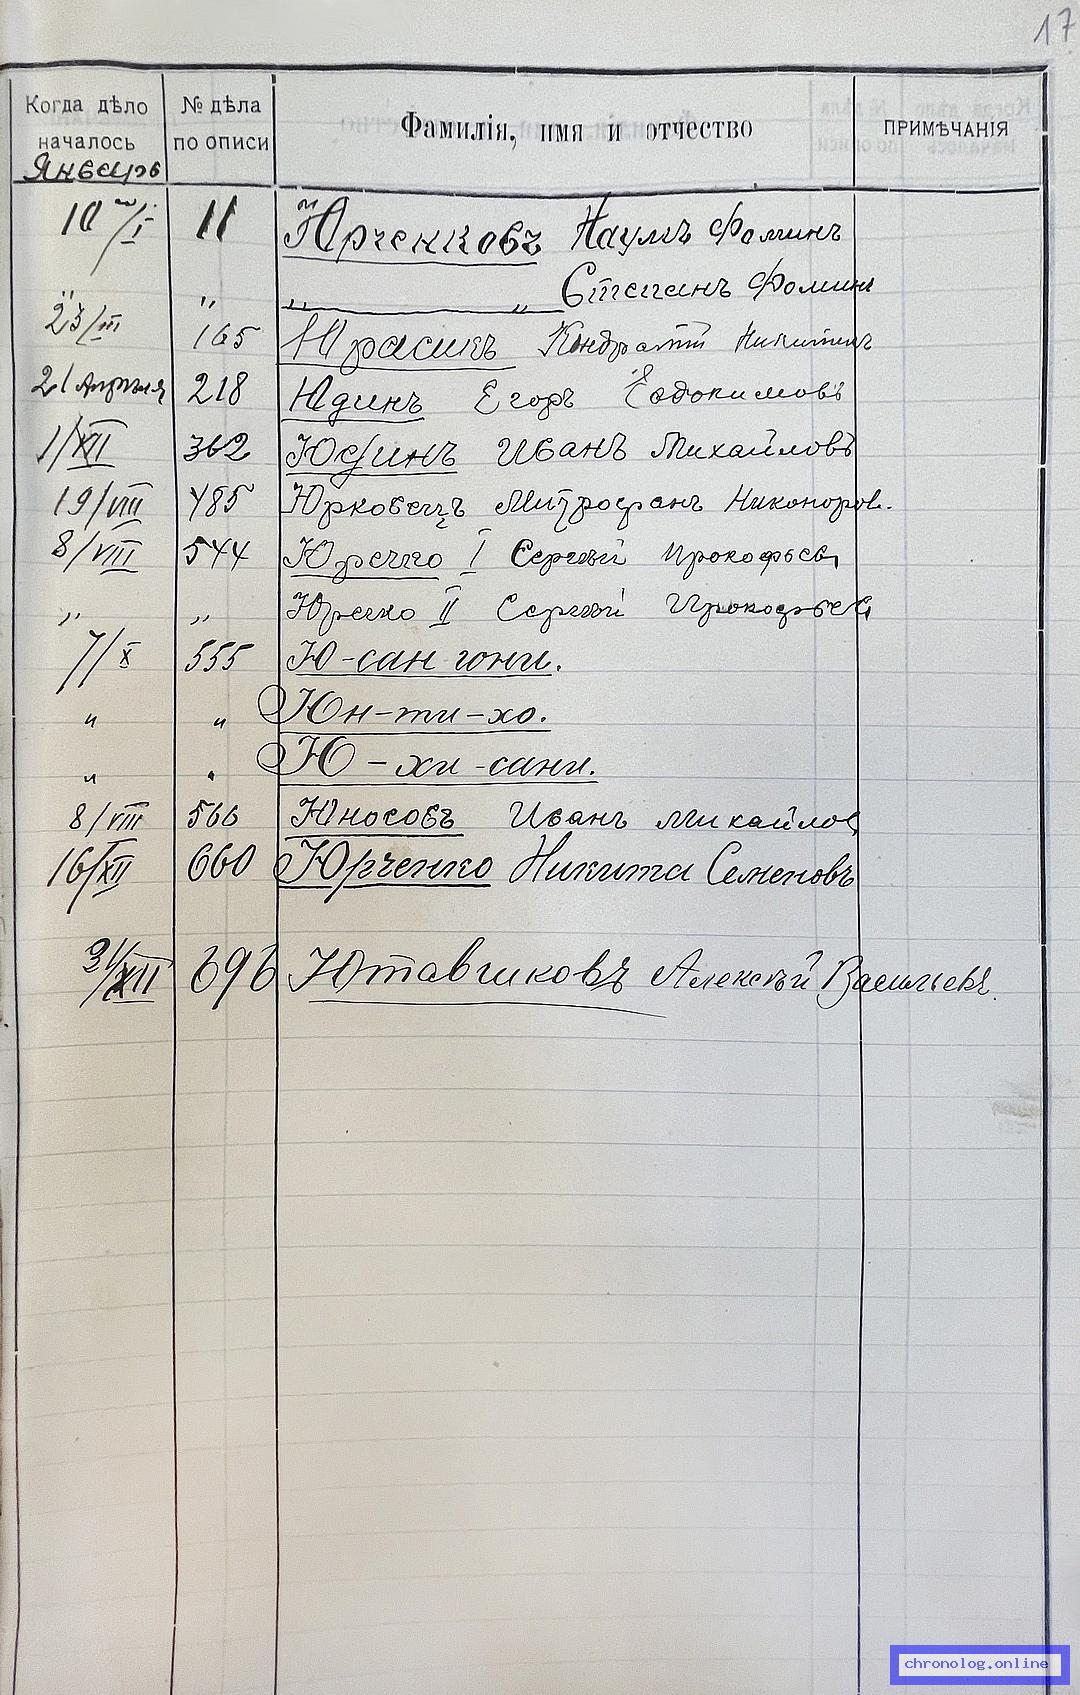 17
Когда дѣло началось № дѣла по описи Фамилія, имя и отчество ПРИМѢЧАНІЯ
Январь
10/I 11 Юрченковъ Наумъ Фоминъ
" " " " Степанъ Фомин
23/III 165 Юрасикъ Кондратій Никитинъ
21 Апрѣля 218 Юдинъ Егоръ Евдокимовъ
1/XII 362 Юдинъ Иванъ Михайловъ
19/VIII 485 Юрковецъ Митрофанъ Никоноров.
8/VIII 544 Юречко I Сергѣй Прокофьев
" " Юречко II Сергѣй Прокофьев
7/X 555 Ю-сан-гони.
" " Юн-ти-хо.
" " Ю-хи-сани.
8/VIII 566 Юносовъ Иванъ Михайлов
16/XII 660 Юрченко Никита Семеновъ
31/XII 696 Ютавшиковъ Алексѣй Васильевъ.
chronolog.online